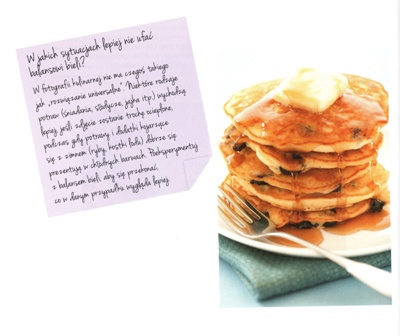 W jakich sytuacjach lepiej nie ufać
balansowi bieli?
W fotografii kulinarnej nie ma czegoś takiego
jak „rozwiązanie uniwersalne”. Niektóre rodzaje
potraw (śniadania, słodycze, jajka itp.) wychodzą
lepiej, jeśli zdjęcie zostanie trochę ocieplone,
podczas gdy potrawy i dodatki kojarzące
się z zimnem (ryby, kostki lodu) dobrze się
prezentują w chłodnych barwach. Poeksperymentuj
z balansem bieli, aby się przekonać,
co w danym przypadku wygląda lepiej.